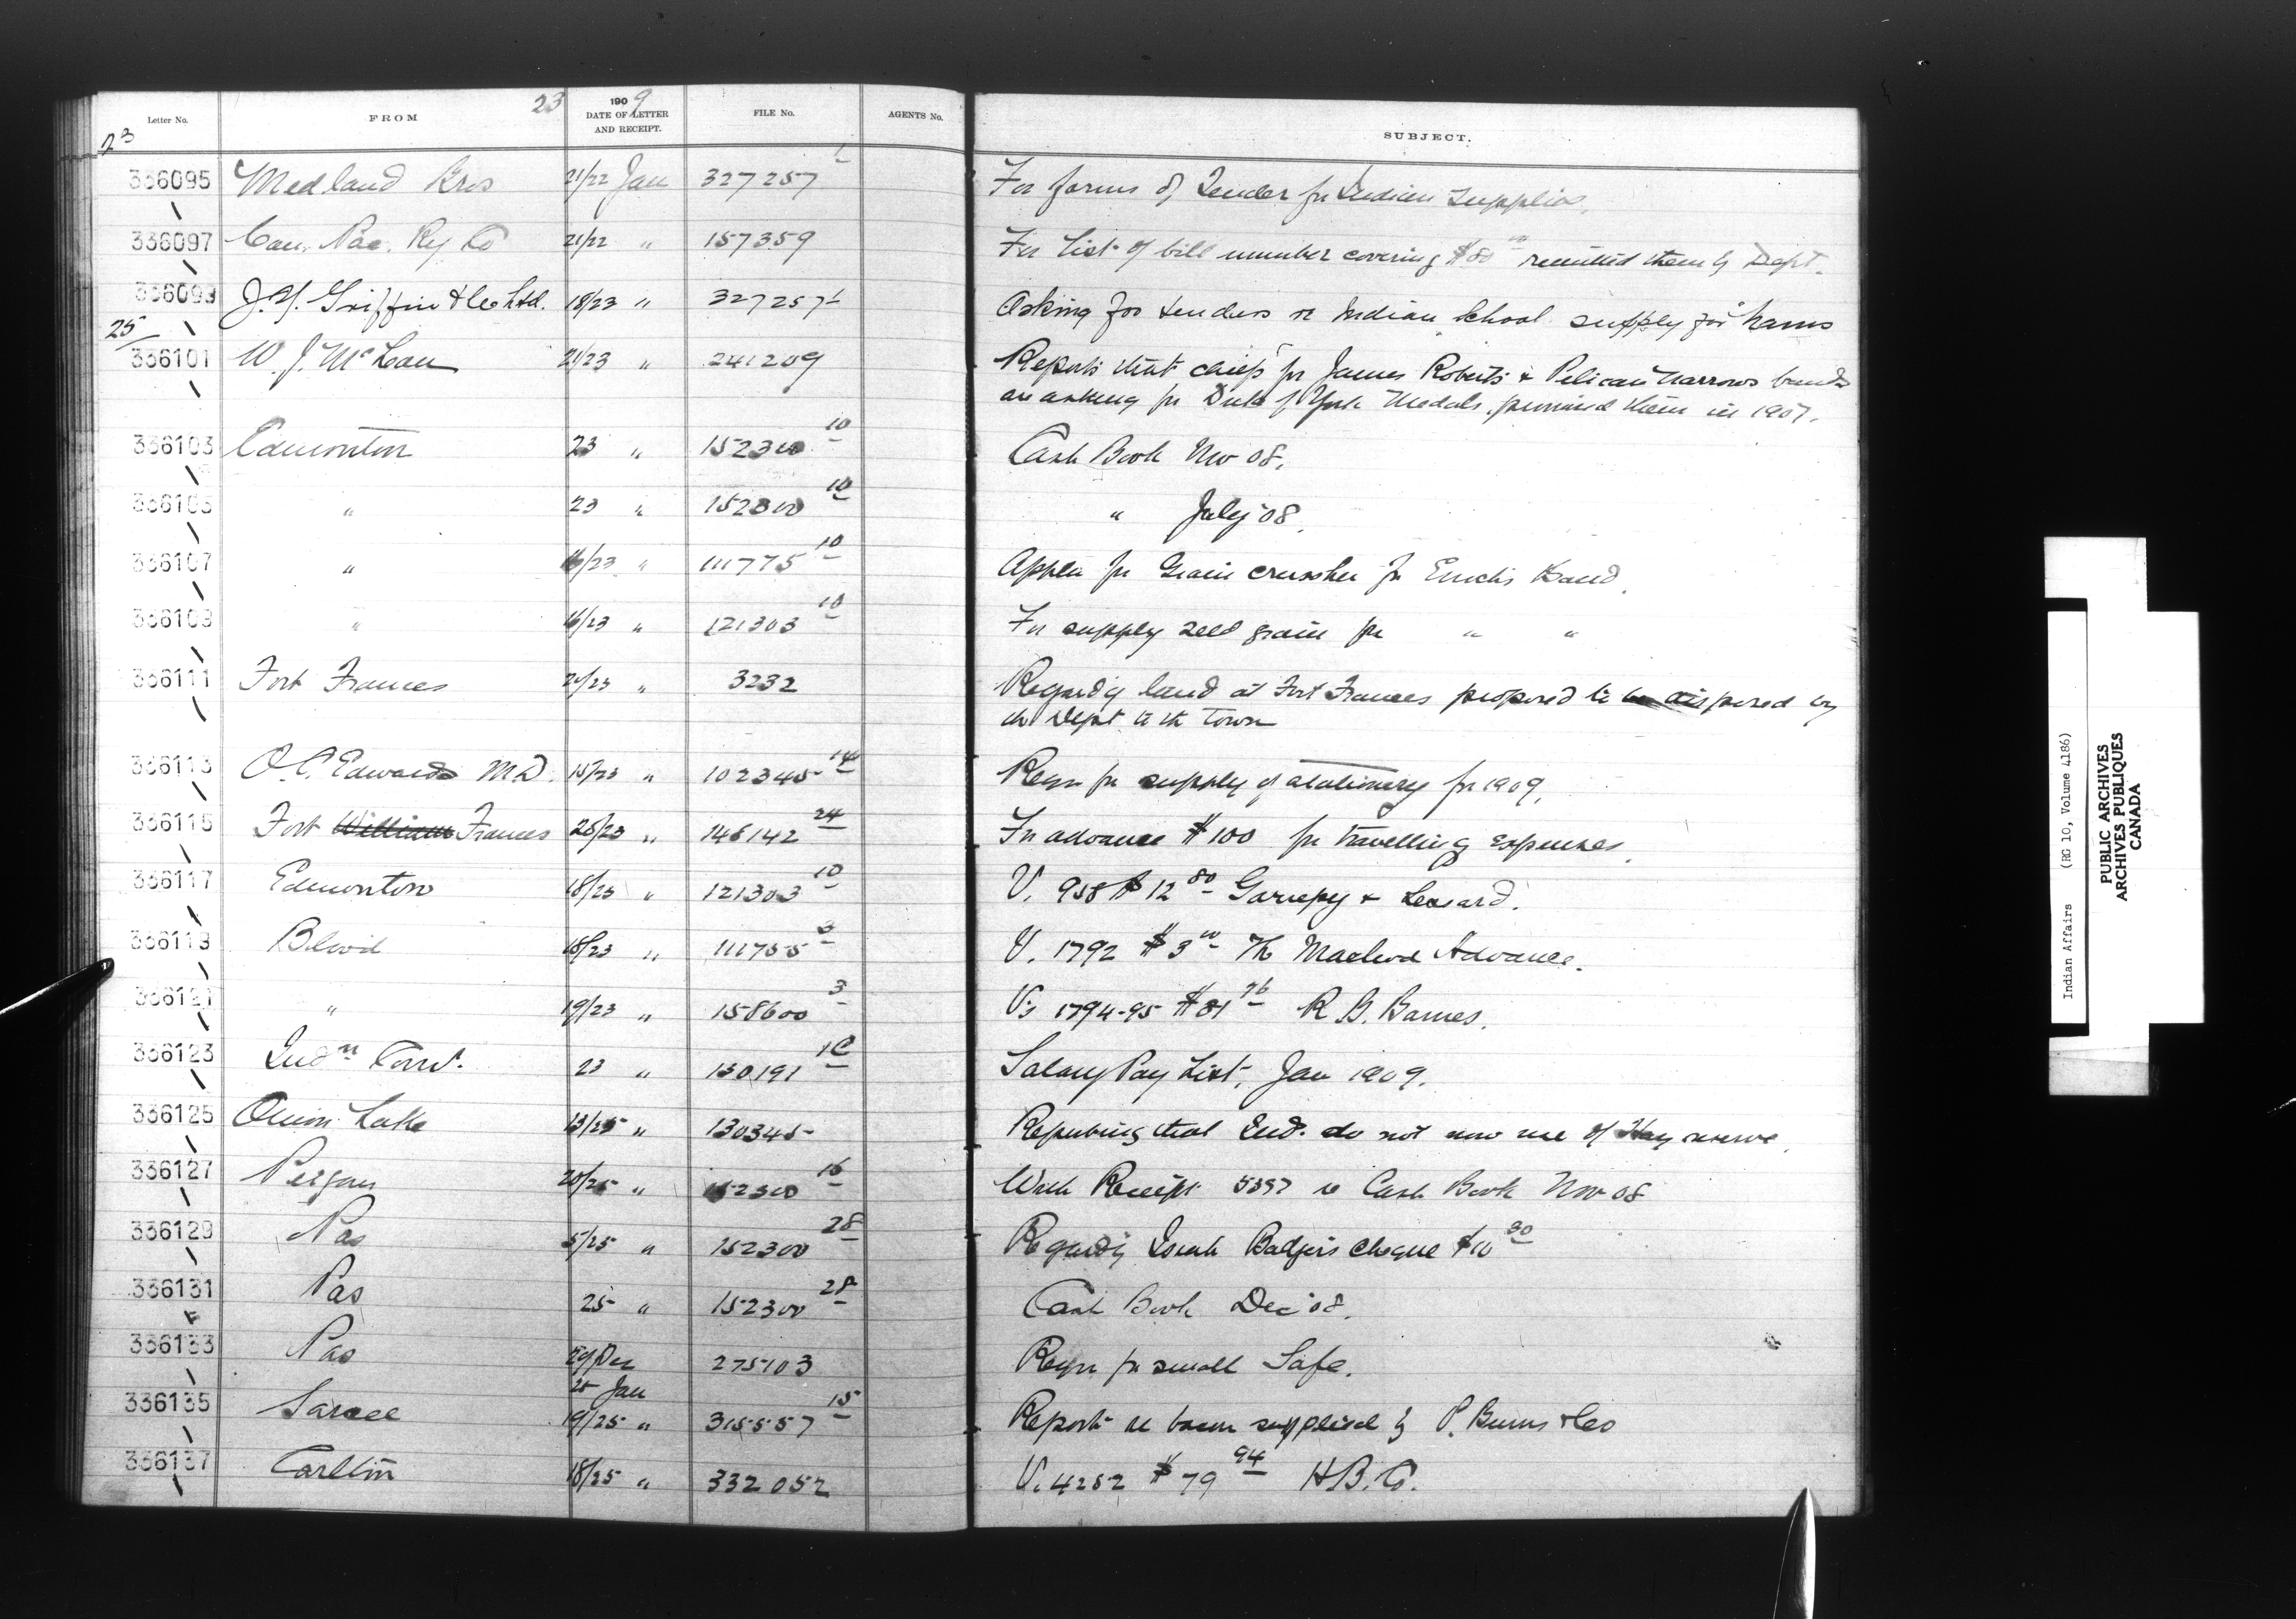 23 1909
Letter No. FROM DATE OF LETTER AND RECEIPT. FILE No. AGENTS No. SUBJECT.
23
336095 Medland Bros 21/22 Jan 327257 1 For forms of Tender for Indian Supplies.
336097 Can. Pac. Ry Co 21/22 " 157359 For List of bill number covering $80 00 remitted them by Dept.
336099 J. Y. Griffin & Co Ltd. 18/23 " 327257 1 Asking for tenders re Indian School supply for hams
25
336101 W. J. McLean 21/23 " 241209 Reports that chiefs for James Roberts & Pelican Narrows bands
are asking for Duke of York Medals, promised them in 1907.
336103 Edmonton 23 " 152300 10 Cash Book Nov 08.
336105 " 23 " 152300 10 " July '08.
336107 " 16/23 " 111775 10 Appln for Grain crusher for Enoch's Band.
336109 " 16/23 " 121303 10 For supply seed grain for " "
336111 Fort Frances 20/23 " 3232 Regardg land at Fort Frances proposed to be disposed by
the Dept to the Town
336113 O. C. Edwards M.D. 15/23 " 102345 14 Reqn for supply of stationery for 1909.
336115 Fort William Frances 20/23 " 146142 24 For advance $100 for travelling expenses.
336117 Edmonton 18/23 " 121303 10 V. 958 $12 80 Gariepy & Lessard.
336119 Blood 18/23 " 111755 3 V. 1792 $3 00 The Macleod Advance.
336121 " 19/23 " 158600 3 Vs 1794-95 $81 76 R. G. Barnes.
336123 Indn Comr. 23 " 130191 1C Salary Pay List, Jan 1909.
336125 Onion Lake 13/25 " 130345 Reporting that Ind. do not now use of Hay reserve.
336127 Peigan 20/25 " 152300 16 With Receipt 5397 re Cash Book Nov 08
336129 Pas 5/25 " 152300 28 Regardg Badger's cheque $10 30
336131 Pas 25 " 152300 28 Cash Book Dec '08.
336133 Pas 29 Dec 25 Jan 275103 Reqn for small Safe.
336135 Sarcee 19/25 " 315557 15 Report re bacon supplied by P. Burns & Co
336137 Carlton 18/25 " 332052 V. 4252 $79 94 H.B. Co.
Indian Affairs (RG 10, Volume 4186)
PUBLIC ARCHIVES
ARCHIVES PUBLIQUES
CANADA